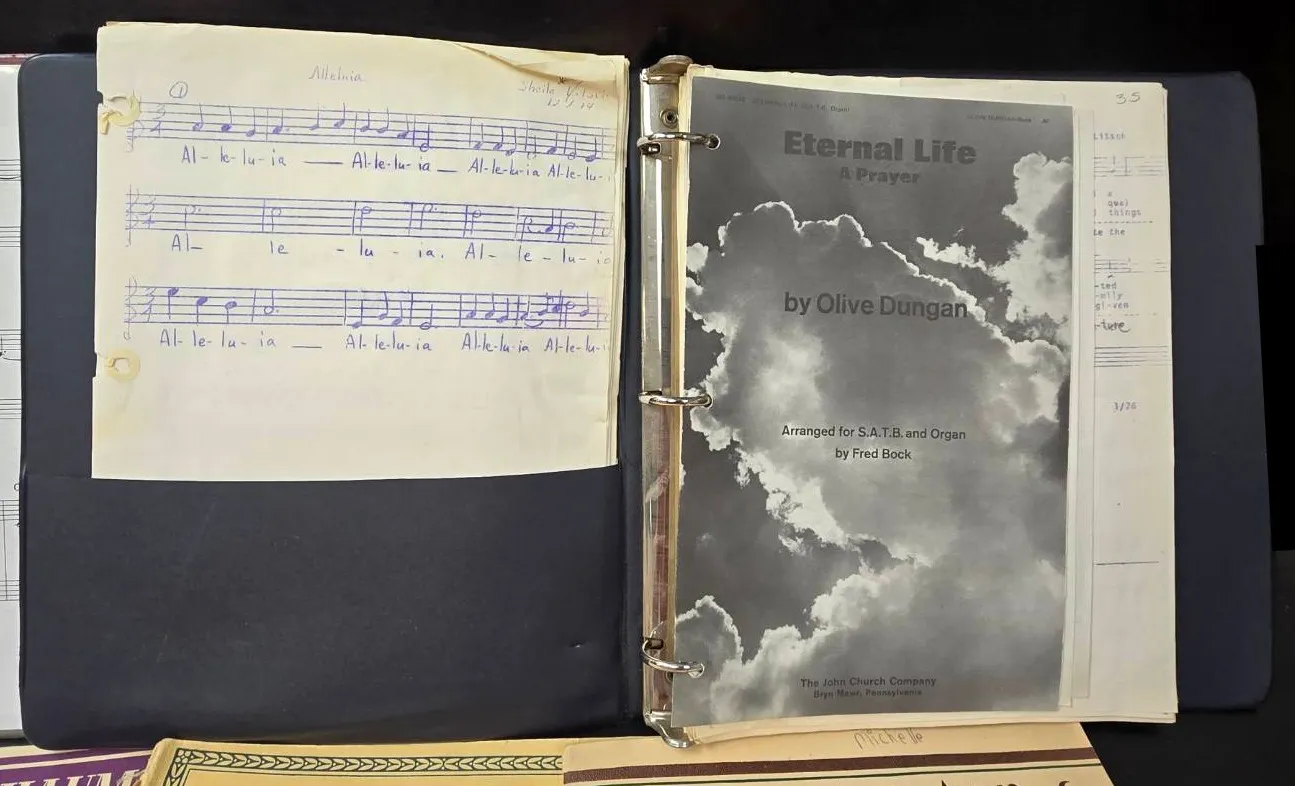 Alleluia
Sheila
①
Al- le- lu- ia — Al-le-lu- ia — Al-le-lu-ia Al-le-lu-
Al- le - lu - ia. Al- le - lu-
Al- le- lu- ia — Al- le-lu-ia Al-le-lu-ia Al-le-lu-
Eternal Life
A Prayer
by Olive Dungan
Arranged for S.A.T.B. and Organ
by Fred Bock
The John Church Company
Bryn Mawr, Pennsylvania
35
qual
things
te the
-ted
-mily
gi-ven
-ture
3/76
Michelle